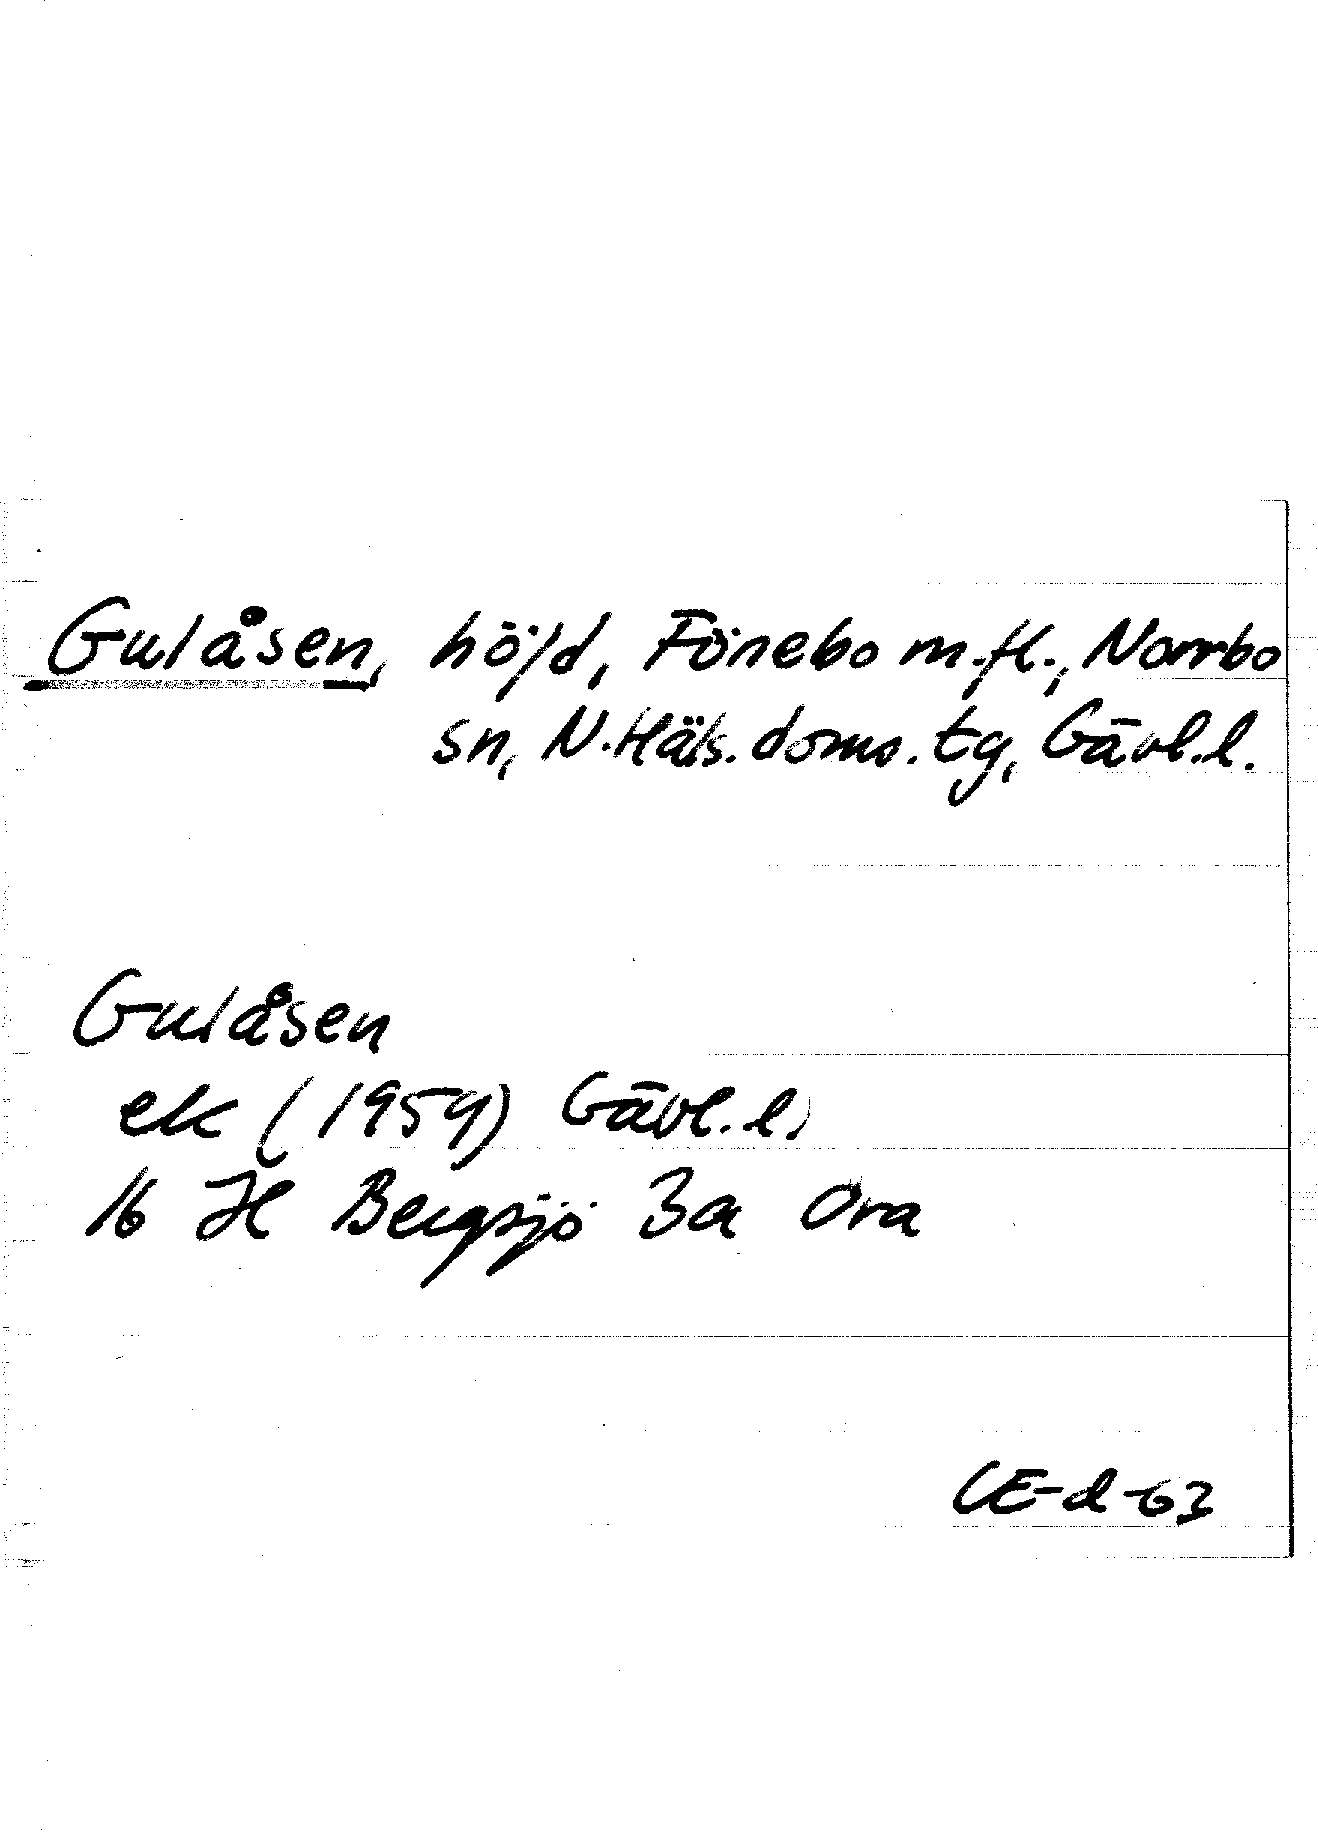 Gulåsen, höjd, Fönebo m.fl., Norrbo
sn, N.Häls. doms. tg, Gävl.l.
Gulåsen
ek (1959) Gävl.l.
16 H Bergsjö 3a Öra
CE-d-63